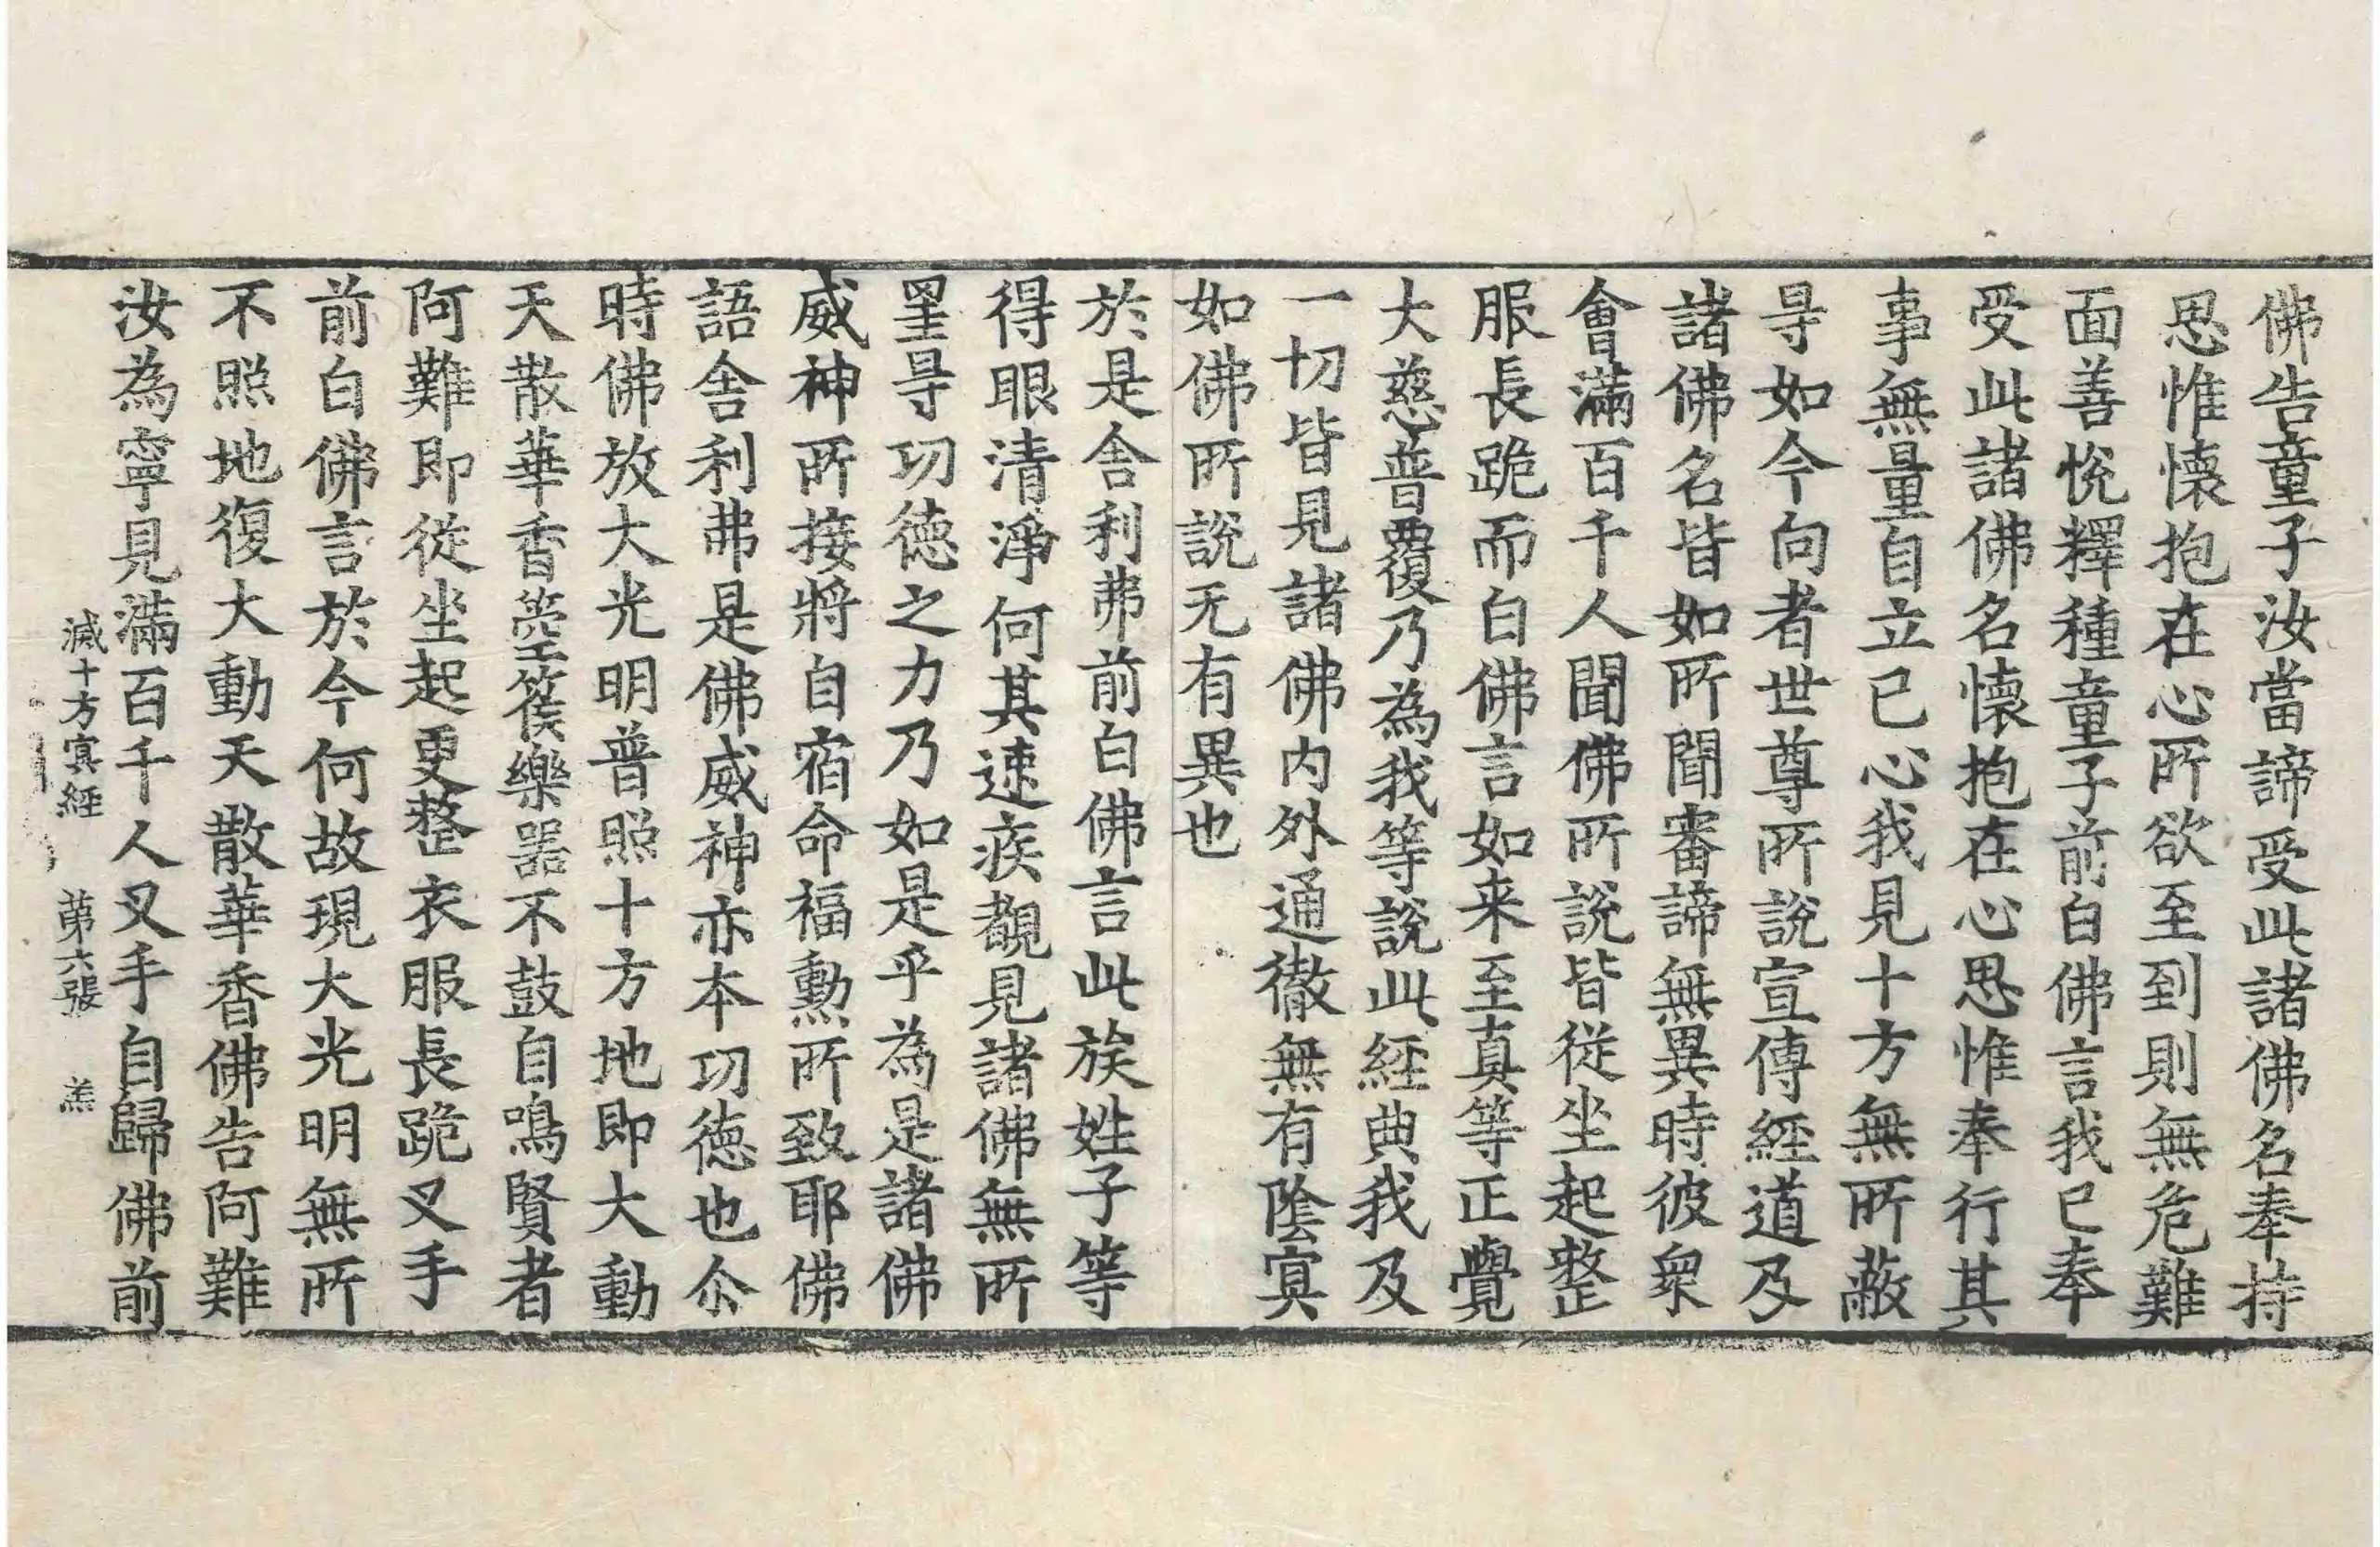 佛告童子汝當諦受此諸佛名奉持
思惟懷抱在心所欲至到則無危難
面善悅釋種童子前白佛言我已奉
受此諸佛名懷抱在心思惟奉行其
事無量自立已心我見十方無所蔽
㝵如今向者世尊所說宣傳經道及
諸佛名皆如所聞審諦無異時彼衆
會滿百千人聞佛所說皆從坐起整
服長跪而白佛言如来至真等正覺
大慈普覆乃為我等說此經典我及
一切皆見諸佛內外通徹無有陰冥
如佛所說无有異也
於是舍利弗前白佛言此族姓子等
得眼清淨何其速疾覩見諸佛無所
罣㝵功德之力乃如是乎為是諸佛
威神所接將自宿命福勲所致耶佛
語舍利弗是佛威神亦本功德也尒
時佛放大光明普照十方地即大動
天散華香箜篌樂器不鼓自鳴賢者
阿難即從坐起更整衣服長跪叉手
前白佛言於今何故現大光明無所
不照地復大動天散華香佛告阿難
汝為寧見滿百千人叉手自歸佛前
滅十方冥經 第六張 羔